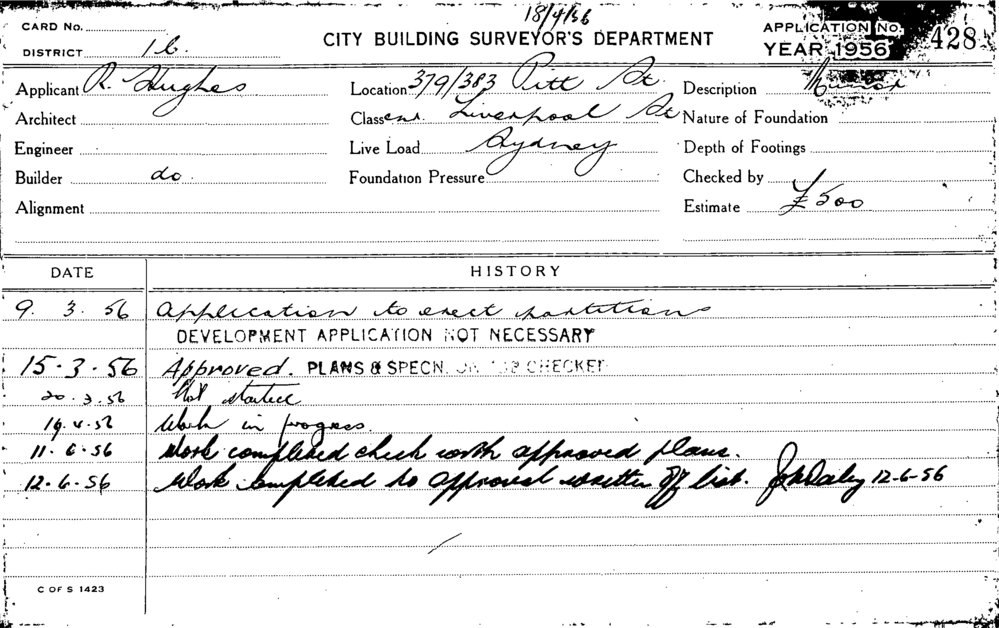 18/4/56
CARD No.
CITY BUILDING SURVEYOR'S DEPARTMENT
APPLICATION No. 428
DISTRICT 1b.
YEAR 1956
Applicant R. Hughes
Location 379/383 Pitt St
Description Minor
Architect
Class cnr. Liverpool St
Nature of Foundation
Engineer
Live Load Sydney
Depth of Footings
Builder do.
Foundation Pressure
Checked by
Alignment
Estimate £500
DATE HISTORY
9. 3. 56 Application to erect partitions
DEVELOPMENT APPLICATION NOT NECESSARY
15.3.56 Approved. PLANS & SPECN. CHECKED
20.3.56 Not started
19.4.56 Work in progress.
11.6.56 Work completed check with approved plans.
12.6.56 Work completed to approval written off list. 12-6-56
C OF S 1423